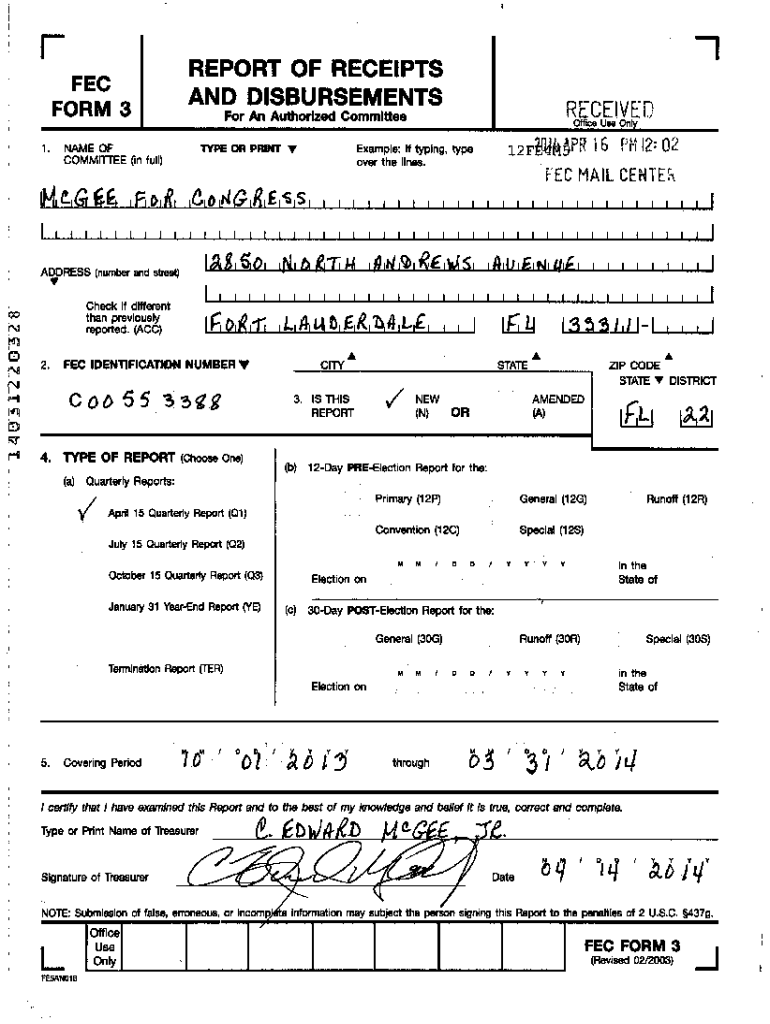 FEC
FORM 3
REPORT OF RECEIPTS
AND DISBURSEMENTS
For An Authorized Committee
RECEIVED
Office Use Only
2014 APR 16 PM 12:02
FEC MAIL CENTER
1. NAME OF
COMMITTEE (in full)
TYPE OR PRINT ▼
Example: If typing, type
over the lines.
12FE4M5
McGEE FOR CONGRESS
ADDRESS (number and street)
2850 NORTH ANDREWS AVENUE
Check if different
than previously
reported. (ACC)
FORT LAUDERDALE FL 33311-
2. FEC IDENTIFICATION NUMBER ▼
CITY ▲ STATE ▲ ZIP CODE ▲
C00553388
3. IS THIS
REPORT
✓ NEW
(N)
OR
AMENDED
(A)
STATE ▼ DISTRICT
FL 22
4. TYPE OF REPORT (Choose One)
(a) Quarterly Reports:
✓ April 15 Quarterly Report (Q1)
July 15 Quarterly Report (Q2)
October 15 Quarterly Report (Q3)
January 31 Year-End Report (YE)
Termination Report (TER)
(b) 12-Day PRE-Election Report for the:
Primary (12P) General (12G) Runoff (12R)
Convention (12C) Special (12S)
M M / D D / Y Y Y Y
Election on
in the
State of
(c) 30-Day POST-Election Report for the:
General (30G) Runoff (30R) Special (30S)
M M / D D / Y Y Y Y
Election on
in the
State of
5. Covering Period 10 / 01 / 2013 through 03 / 31 / 2014
I certify that I have examined this Report and to the best of my knowledge and belief it is true, correct and complete.
Type or Print Name of Treasurer C. EDWARD McGEE, JR.
Signature of Treasurer
Date 04 / 14 / 2014
NOTE: Submission of false, erroneous, or incomplete information may subject the person signing this Report to the penalties of 2 U.S.C. §437g.
Office
Use
Only
FEC FORM 3
(Revised 02/2003)
FE5AN018
14031220328